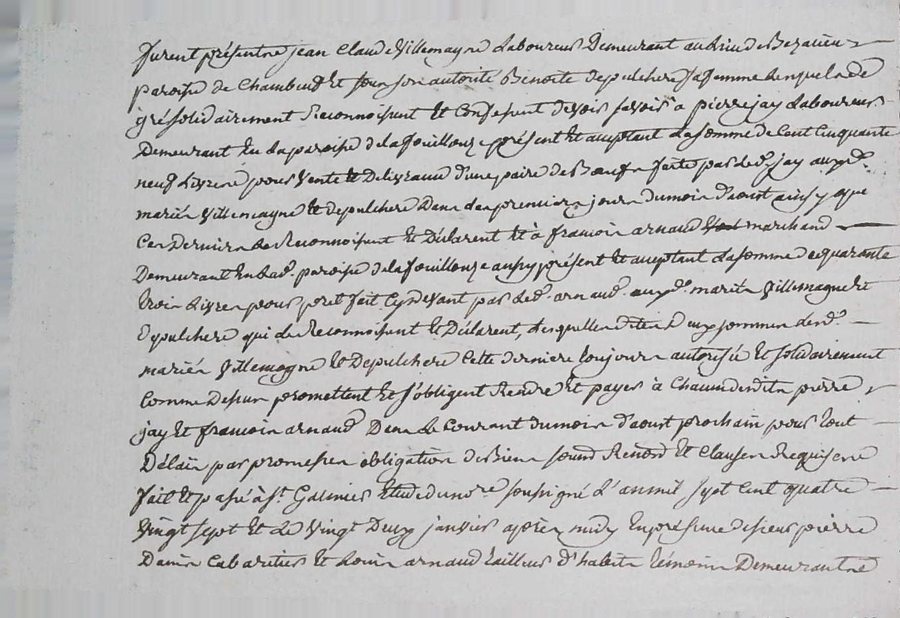 furent présents jean Claude Villemagne Laboureur Demeurant au lieu de Bezalieu
paroisse de Chambeud Et sous son autorité Benoite depulchere sa femme lesquels de
gré solidairement Reconnoissent Et Confessent devoir a pierre jay Laboureur
Demeurant En La paroisse de La fouillouze présent Et acceptant La somme de Cent Cinquante
neuf Livres pour Vente Et Délivrance d'une paire de Bœufs faite par led. jay auxd.
mariés Villemagne Et depulchere Dans Les premiers jours du mois d'aoust ainsy que
Ces Derniers Le Reconnoissent Et Déclarent Et à francois arnaud marchand
Demeurant En Lad. paroisse de La fouillouze aussy présent Et acceptant La somme de quarante
trois Livres pour pret fait Cy devant par led. arnaud auxd. mariés Villemagne Et
Depulchere qui Le Reconnoissent Et Déclarent, Lesquelles dites Deux sommes lesd.
mariés Villemagne Et Depulchere Cette derniere toujours autorisée Et solidairement
Comme Dessus promettent Et s'obligent Rendre Et payer à Chacun desdits pierre
jay Et francois arnaud Dans Le Courant du mois d'aoust prochain pour tout
Délais par promesses obligation de Biens Renond Et Clauses Requises
fait Et passé à St. Galmier Etude du nore soussigné L'an mil sept Cent quatre
Vingt sept Et Le Vingt Deux janvier après midy En présence de sieur pierre
Cabaretier Et Louis arnaud tailleur d'habits témoins Demeurant